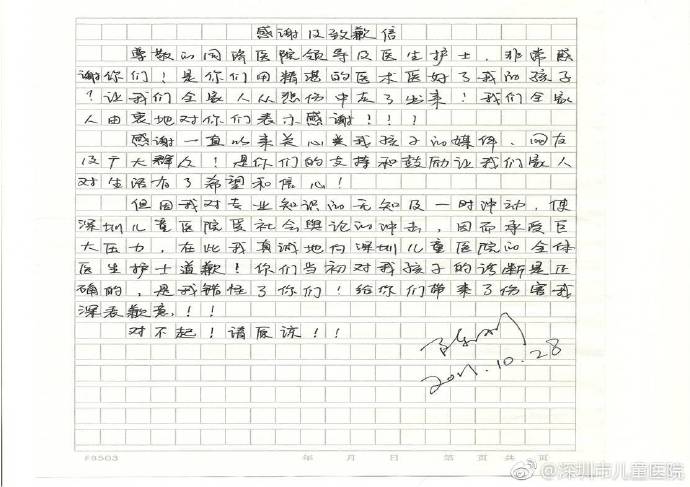 感谢及致歉信
尊敬的同济医院领导及医生护士，非常感
谢你们！是你们用精湛的医术医好了我的孩子
！让我们全家人从悲伤中走了出来！我们全家
人由衷地对你们表示感谢！！！
感谢一直以来关心关爱我孩子的媒体、网友
及广大群众！是你们的支持和鼓励让我们家人
对生活有了希望和信心！
但因我对专业知识的无知及一时冲动，使
深圳儿童医院受社会舆论的冲击，因而承受巨
大压力，在此我真诚地向深圳儿童医院的全体
医生护士道歉！你们当初对我孩子的诊断是正
确的，是我错怪了你们！给你们带来了伤害我
深表歉意！！！
对不起！请原谅！！
2011.10.28
F8503 年 月 日 第 页 共 页
@深圳市儿童医院